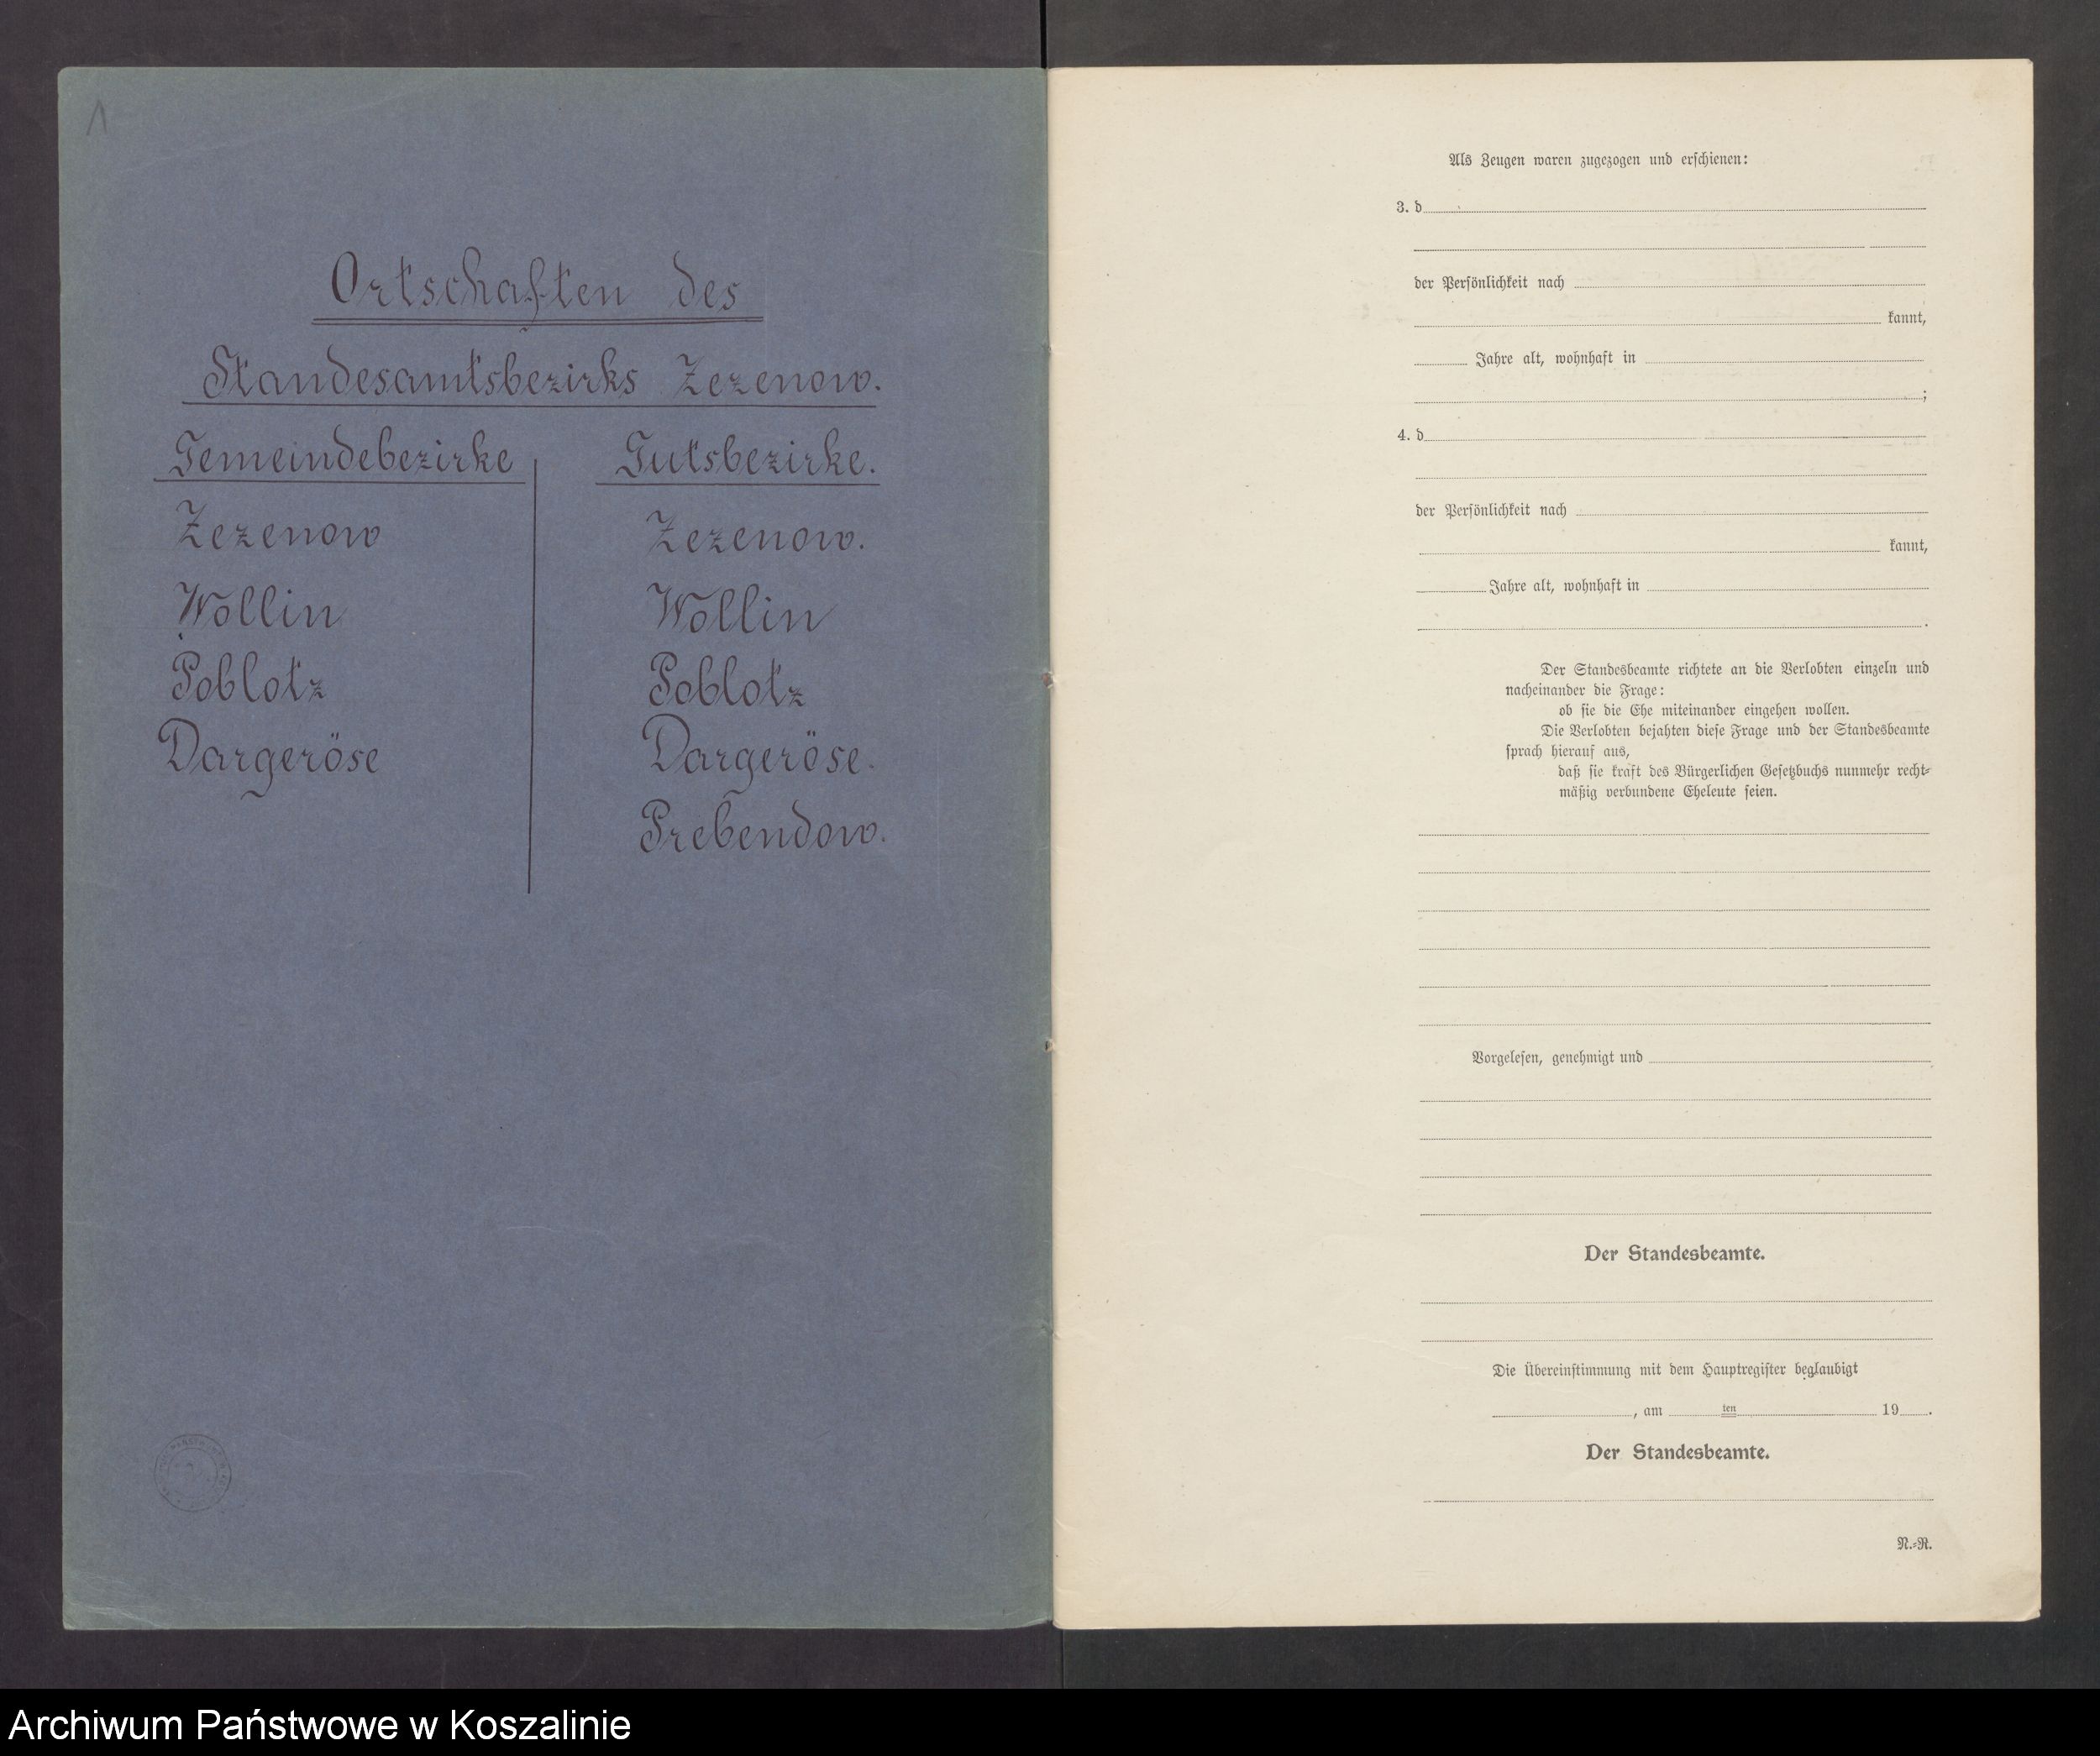 Ortschaften des
Standesamtsbezirks Zezenow.
Gemeindebezirke
Zezenow
Wollin
Poblotz
Dargeröse
Gutsbezirke.
Zezenow.
Wollin
Poblotz
Dargeröse.
Prebendow.
Als Zeugen waren zugezogen und erschienen:
3. d
der Persönlichkeit nach
kannt,
Jahre alt, wohnhaft in
;
4. d
der Persönlichkeit nach
kannt,
Jahre alt, wohnhaft in
.
Der Standesbeamte richtete an die Verlobten einzeln und
nacheinander die Frage:
ob sie die Ehe miteinander eingehen wollen.
Die Verlobten bejahten diese Frage und der Standesbeamte
sprach hierauf aus,
daß sie kraft des Bürgerlichen Gesetzbuchs nunmehr recht-
mäßig verbundene Eheleute seien.
Vorgelesen, genehmigt und
Der Standesbeamte.
Die Übereinstimmung mit dem Hauptregister beglaubigt
, am ten 19 .
Der Standesbeamte.
N.-R.
Archiwum Państwowe w Koszalinie